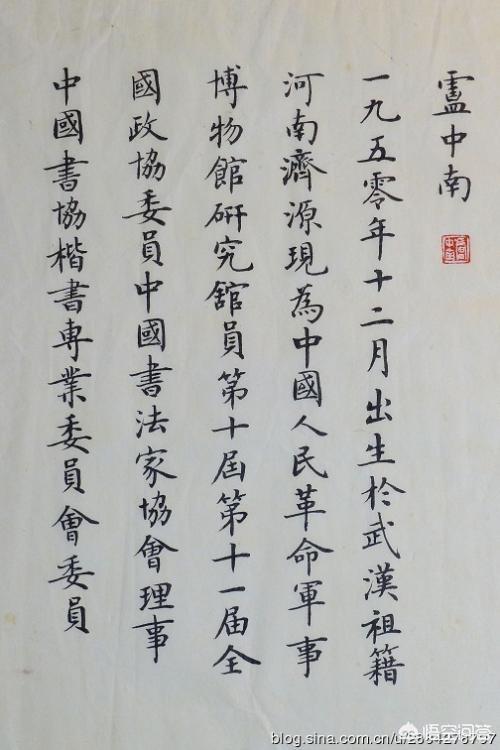 盧中南
一九五零年十二月出生於武漢祖籍
河南濟源現為中國人民革命軍事
博物館研究館員第十屆第十一届全
國政協委員中國書法家協會理事
中國書協楷書專業委員會委員
悟空问答